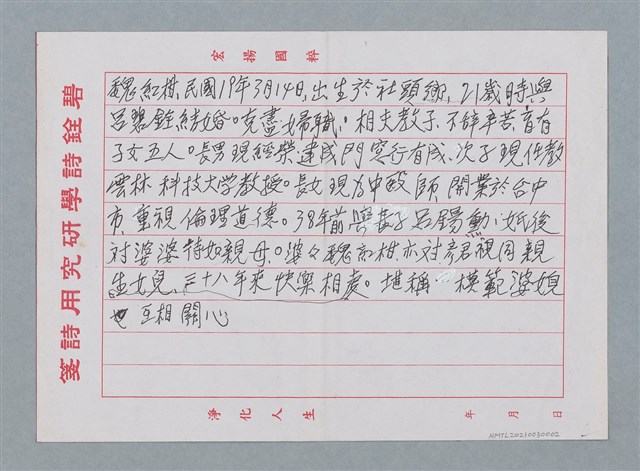 宏揚國粹
碧銓詩學研究用詩箋
魏紅柑,民國19年3月14日,出生於社頭鄉,21歲時與
呂碧銓結婚。克盡婦職。相夫教子、不辞辛苦、育有
子女五人。長男現經營達成門窓行有成、次子現任教
雲林科技大学教授。長女現为中医師 開業於台中
市,重視倫理道德。38年前與長子呂錫勲、婚後
对婆婆待如親母。婆々魏紅柑亦对彥君視同親
生女兒、三十八年來快樂相處。堪稱 模範婆媳
也 互相關心
淨化人生
年 月 日
NMTL20210030002